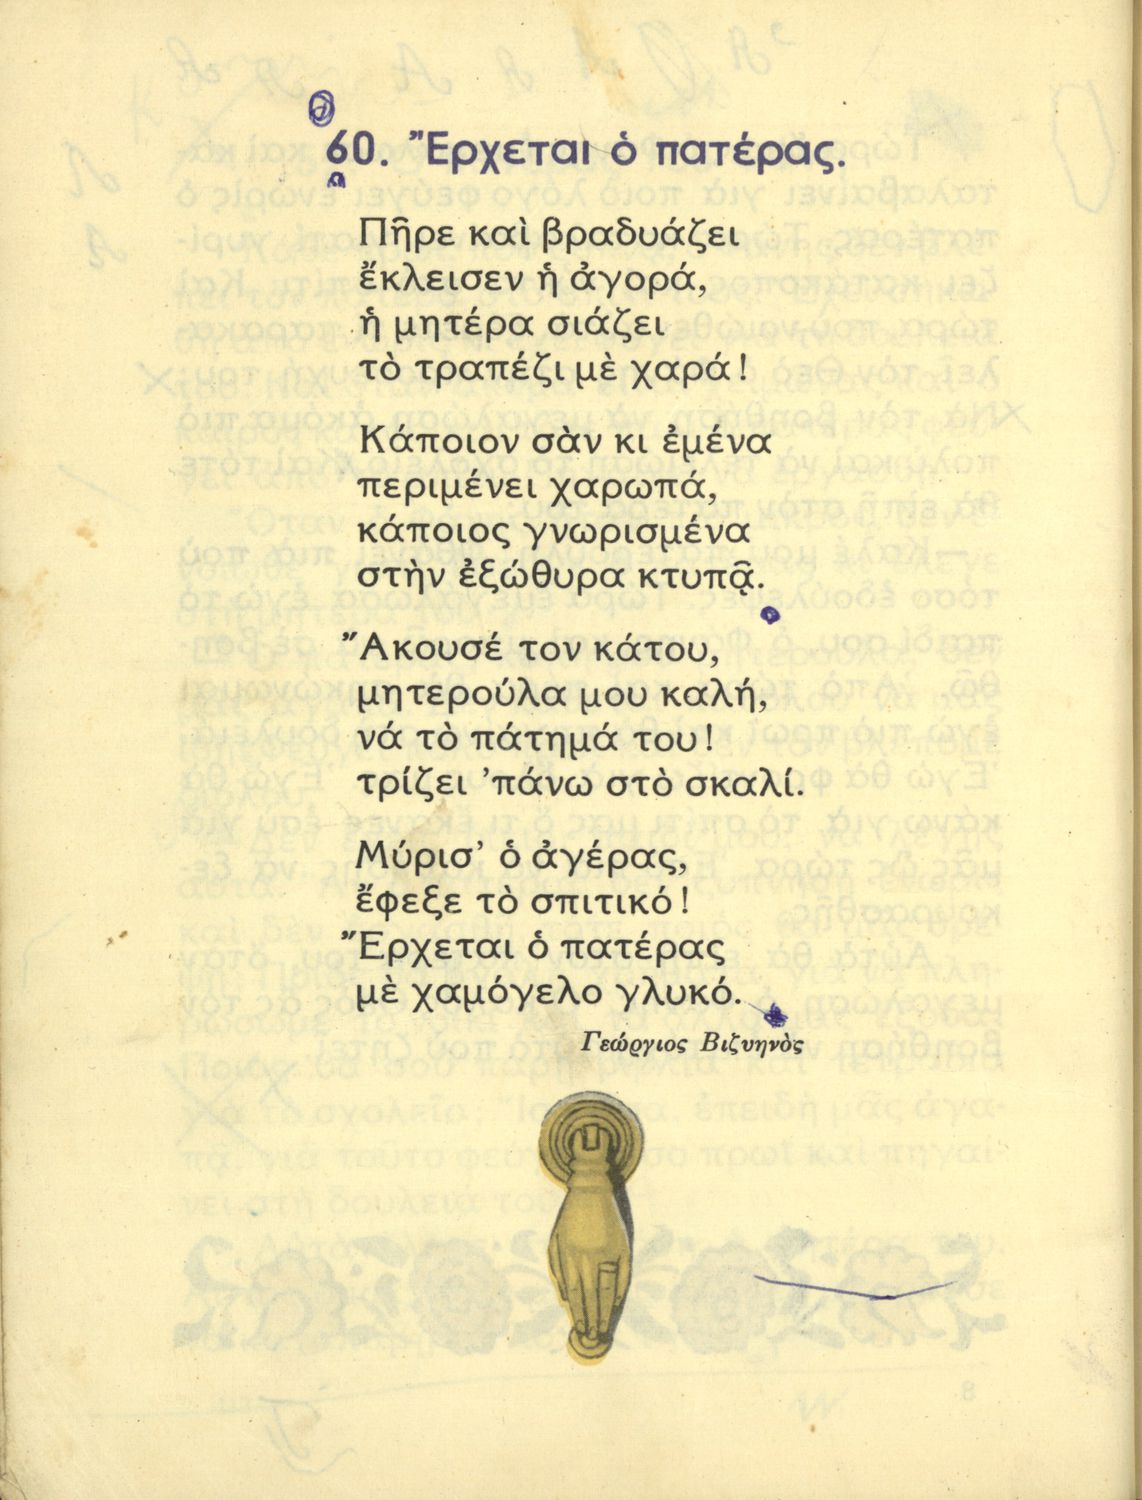 60. Ἔρχεται ὁ πατέρας.
Πῆρε καὶ βραδυάζει
ἔκλεισεν ἡ ἀγορά,
ἡ μητέρα σιάζει
τὸ τραπέζι μὲ χαρά!
Κάποιον σὰν κι ἐμένα
περιμένει χαρωπά,
κάποιος γνωρισμένα
στὴν ἐξώθυρα κτυπᾷ.
Ἄκουσέ τον κάτου,
μητερούλα μου καλή,
νά τὸ πάτημά του!
τρίζει ’πάνω στὸ σκαλί.
Μύρισ’ ὁ ἀγέρας,
ἔφεξε τὸ σπιτικό!
Ἔρχεται ὁ πατέρας
μὲ χαμόγελο γλυκό.
Γεώργιος Βιζυηνὸς